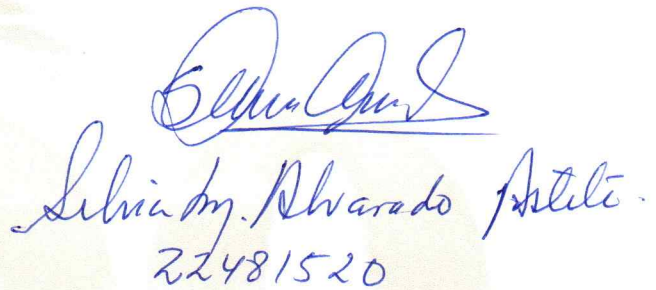 Silvia My. Alvarado Astete.
22481520